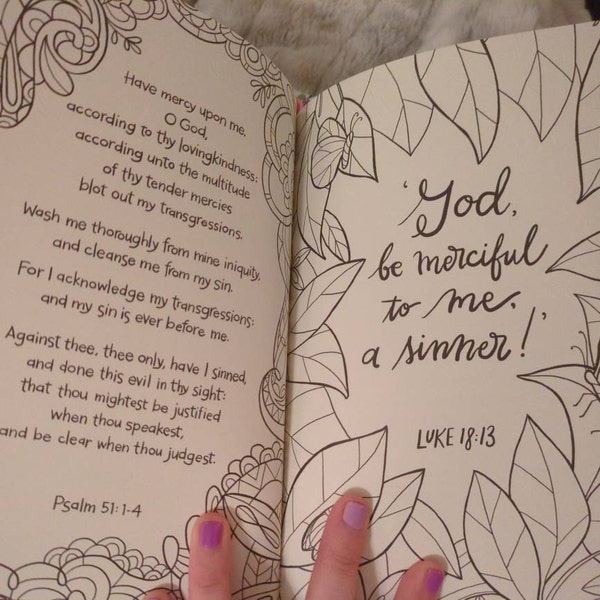 Have mercy upon me.
O God,
according to thy lovingkindness:
according unto the multitude
of thy tender mercies
blot out my transgressions.
Wash me thoroughly from mine iniquity,
and cleanse me from my sin.
For I acknowledge my transgressions:
and my sin is ever before me.
Against thee, thee only, have I sinned,
and done this evil in thy sight:
that thou mightest be justified
when thou speakest,
and be clear when thou judgest.
Psalm 51:1-4
'God,
be merciful
to me,
a sinner!'
LUKE 18:13